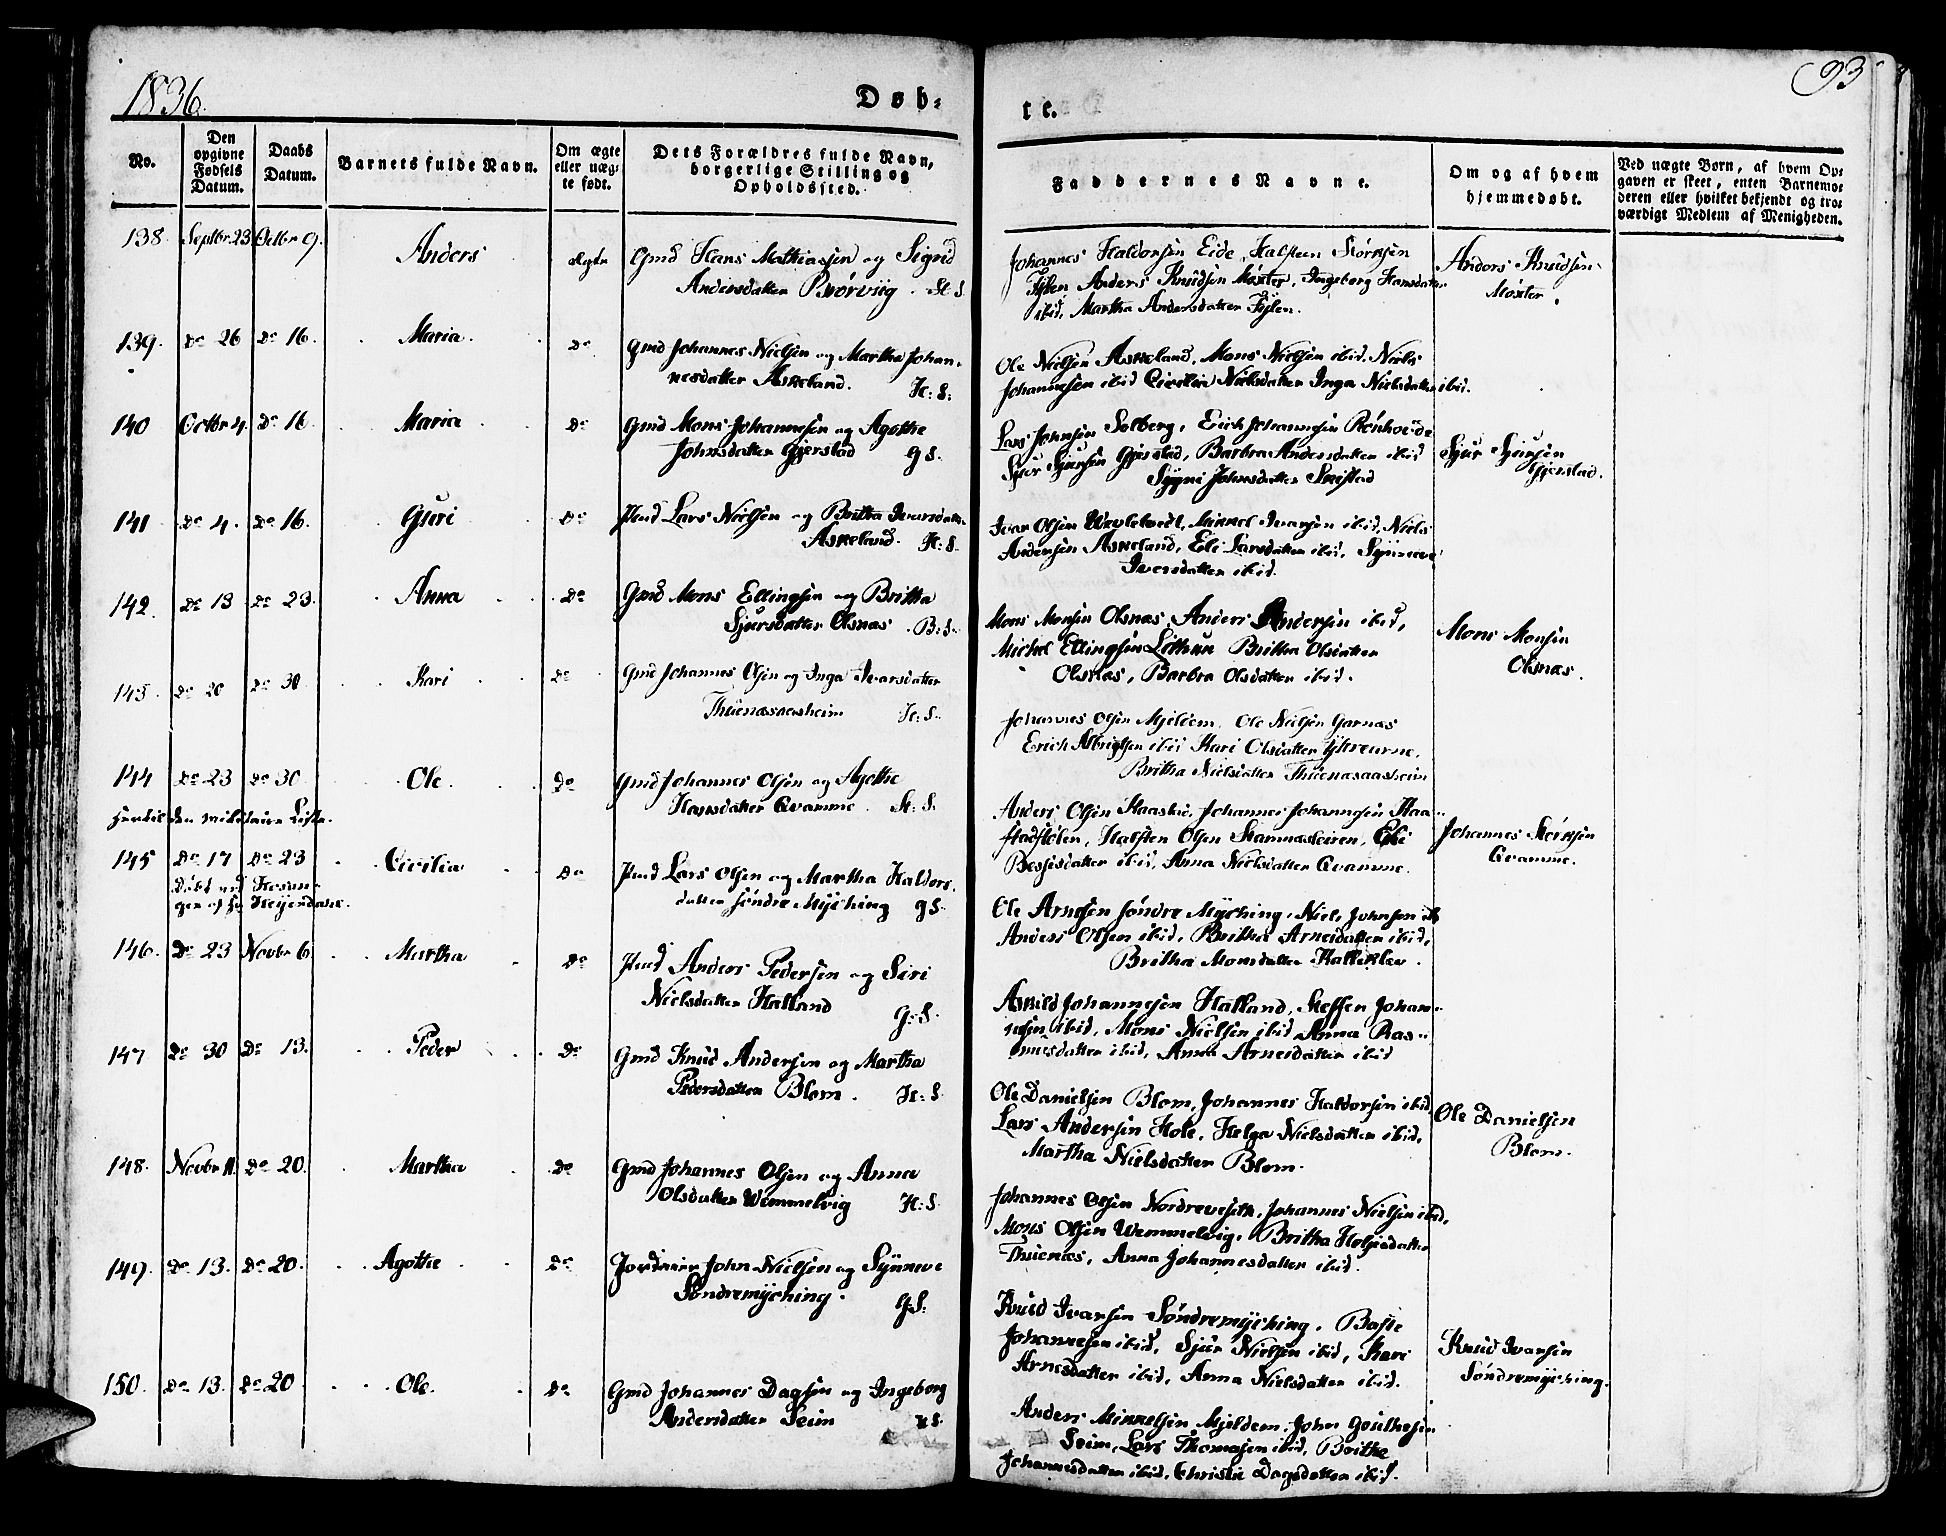 1836.
Døb-
te.
93
No.
Den opgivne Fødsels Datum.
Daabs Datum.
Barnets fulde Navn.
Om ægte eller uægte født.
Dets Forældres fulde Navn, borgerlige Stilling og Opholdssted.
Faddernes Navne.
Om og af hvem hjemmedøbt.
Ved uægte Børn, af hvem Opgaven er skeet, enten Barnemoderen eller hvilket bekjendt og troværdigt Medlem af Menigheden.
138. Septbr 23. Octbr 9. Anders ægte Gmd Hans Mathiassen og Sigrid
Andersdatter H: S.
Johannes Haldorsen Eide, Halsteen Størksen
Anders Knudsen Møster, Ingeborg Hansdatter
ibid, Martha Andersdatter
Anders Knudsen
Møster.
139. Do 26 Do 16. Maria Do Gmd Johannes Nielsen og Martha Johan-
nesdatter Askeland. H: S:
Ole Nielsen Askeland, Mons Nielsen ibid, Niels
Johannesen ibid Cicilia Nielsdatter Inga Nielsdatter ibid.
140 Octbr 4. Do 16. Maria Do Gmd Mons Johannesen og Agathe
Johnsdatter Gjerstad G S.
Lars Johnsen Solberg, Erich Johannesen
Sjur Sjursen Gjerstad, Barbra Andersdatter ibid
Johnsdatter
Sjur Sjursen
Gjerstad.
141 Do 4. Do 16. Guri Do Pmd Lars Nielsen og Britha Iversdatter
Askeland. H: S.
Ivar Olsen Mikkel Ivarsen ibid, Niels
Andersen Askeland, Eli Larsdatter ibid,
Iversdatter ibid.
142. Do 13 Do 23. Anna Do Gmd Mons Ellingsen og Britha
Sjursdatter Olsnæs B: S.
Mons Monsen Olsnæs, Anders Andersen ibid,
Michel Ellingsen Britha Olsdatter
Olsnæs, Barbra Olsdatter ibid.
Mons Monsen
Olsnæs.
143. Do 20 Do 30. Kari Do Gmd Johannes Olsen og Inga Ivarsdatter
H: S.
Johannes Olsen Mjeldem, Ole Nielsen Garnæs
Erich ibid Kari Olsdatter
Britha Nielsdatter
144 Do 23 Do 30. Ole. Do Gmd Johannes Olsen og Agathe
Hansdatter Qvamme. H: S.
den militaire Liste.
Anders Olsen Johannes Johannesen
Halsten Olsen Eli
ibid, Anna Nielsdatter Qvamme.
Johannes Størksen
Qvamme.
145 Do 17 Do 23 Cicilia Do Pmd Lars Olsen og Martha Haldors-
datter søndre Myching G S.
Døbt ved
Ole Arnesen søndre Myching, Niels Johnsen ib
Anders Olsen ibid, Britha Arnesdatter ibid,
Britha Monsdatter
146. Do 23 Novbr 6. Martha Do Pmd Anders Pedersen og Siri
Nielsdatter Halland G: S.
Johannesen Halland, Steffen Johan-
nesen ibid, Mons Nielsen ibid Anna Ras-
musdatter ibid, Anna Arnesdatter ibid
147 Do 30 Do 13. Peder Do Gmd Knud Andersen og Martha
Pedersdatter Blom. H: S.
Ole Danielsen Blom, Johannes Haldorsen ibid
Lars Andersen Hole, Helga Nielsdatter ibid,
Martha Nielsdatter Blom.
Ole Danielsen
Blom.
148. Novbr 11. Do 20. Martha Do Gmd Johannes Olsen og Anna
Olsdatter Wemmelvig H: S.
Johannes Olsen Johannes Nielsen ibid,
Mons Olsen Wemmelvig, Britha
Anna Johannesdatter ibid.
149. Do 13. Do 20. Agathe Do John Nielsen og Synneve
Søndremyching. G: S.
Knud Ivarsen Søndremyching,
Johannesen ibid, Sjur Nielsen ibid, Kari
Arnesdatter ibid, Anna Nielsdatter ibid.
Knud Ivarsen
Søndremyching.
150. Do 13. Do 20 Ole. Do Gmd Johannes Dagsen og Ingeborg
Andersdatter Seim H S.
Anders Mikkelsen Mjeldem, John
Seim, Lars Thomasen ibid, Britha
Johannesdatter ibid, Christi Dagsdatter ibid.